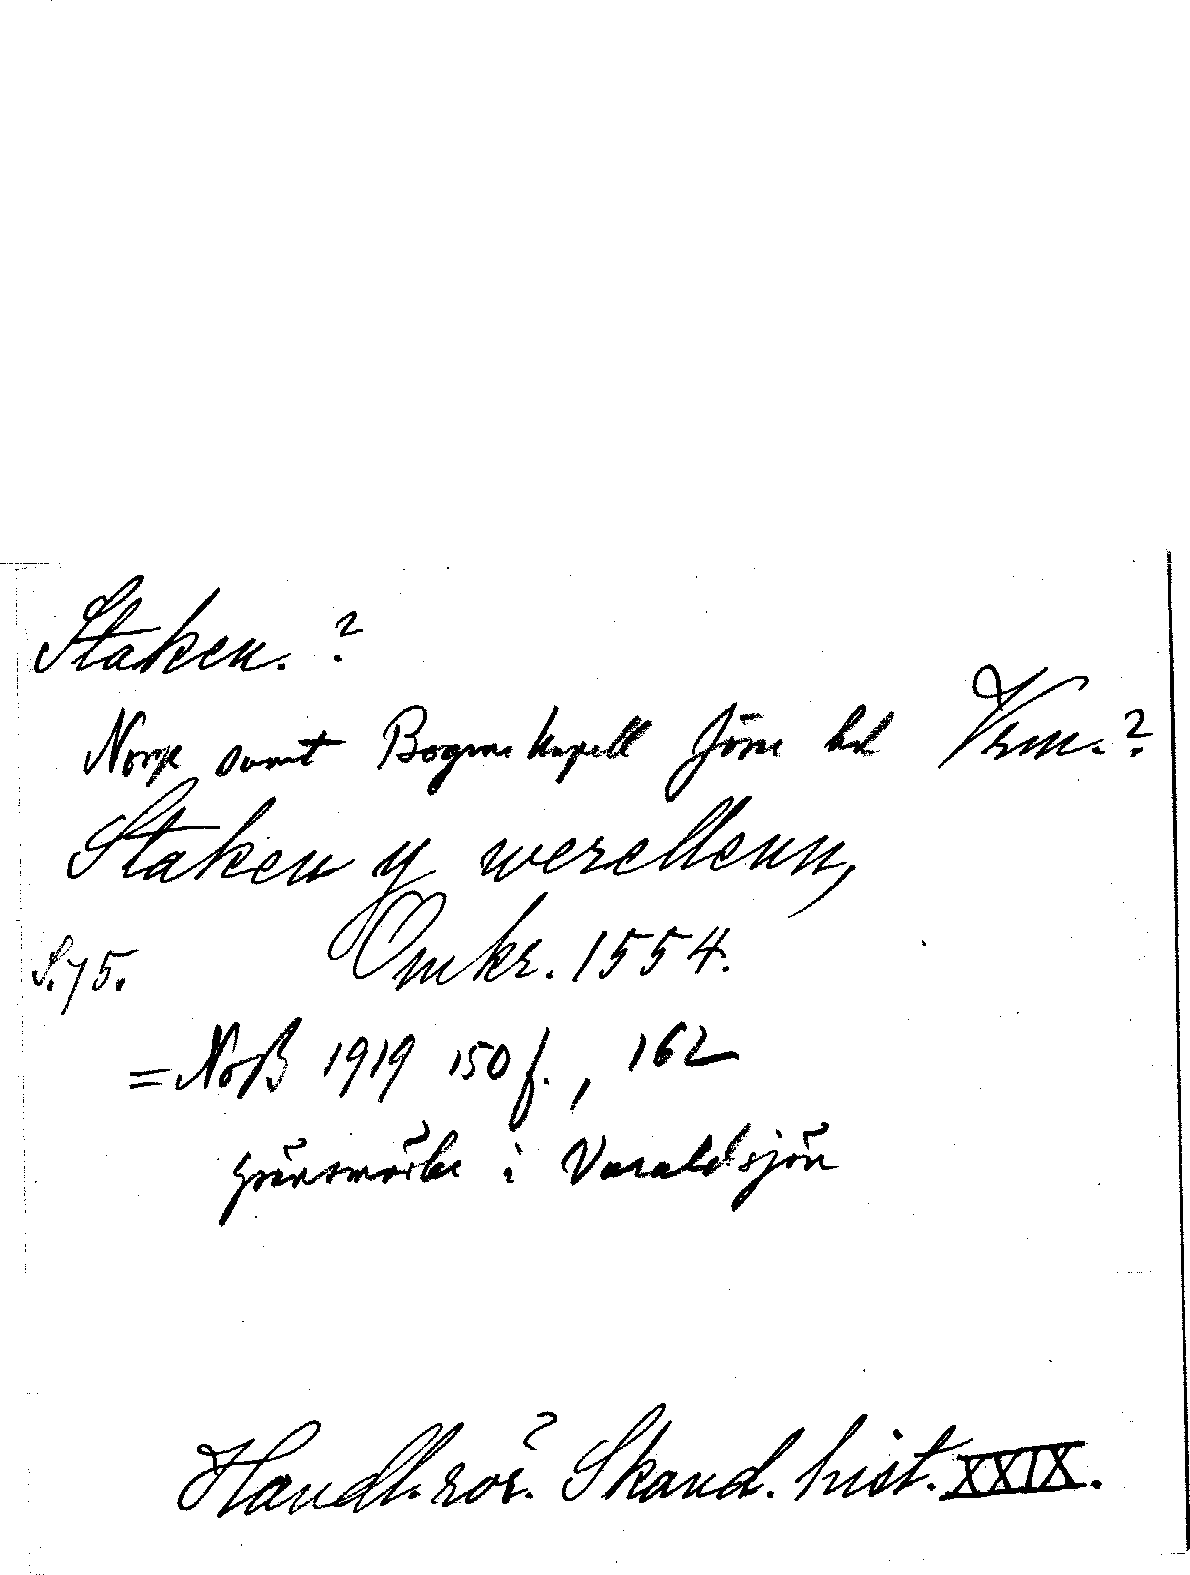 Staken. ?
Norge samt Bogens kapell Jösse hd Vrm.?
Staken y werellenn,
S. 75. Omkr. 1554.
= NoB 1919 150 f., 162
gränsmärke i Varaldsjön
Handl. rör. Skand. hist. XXIX.